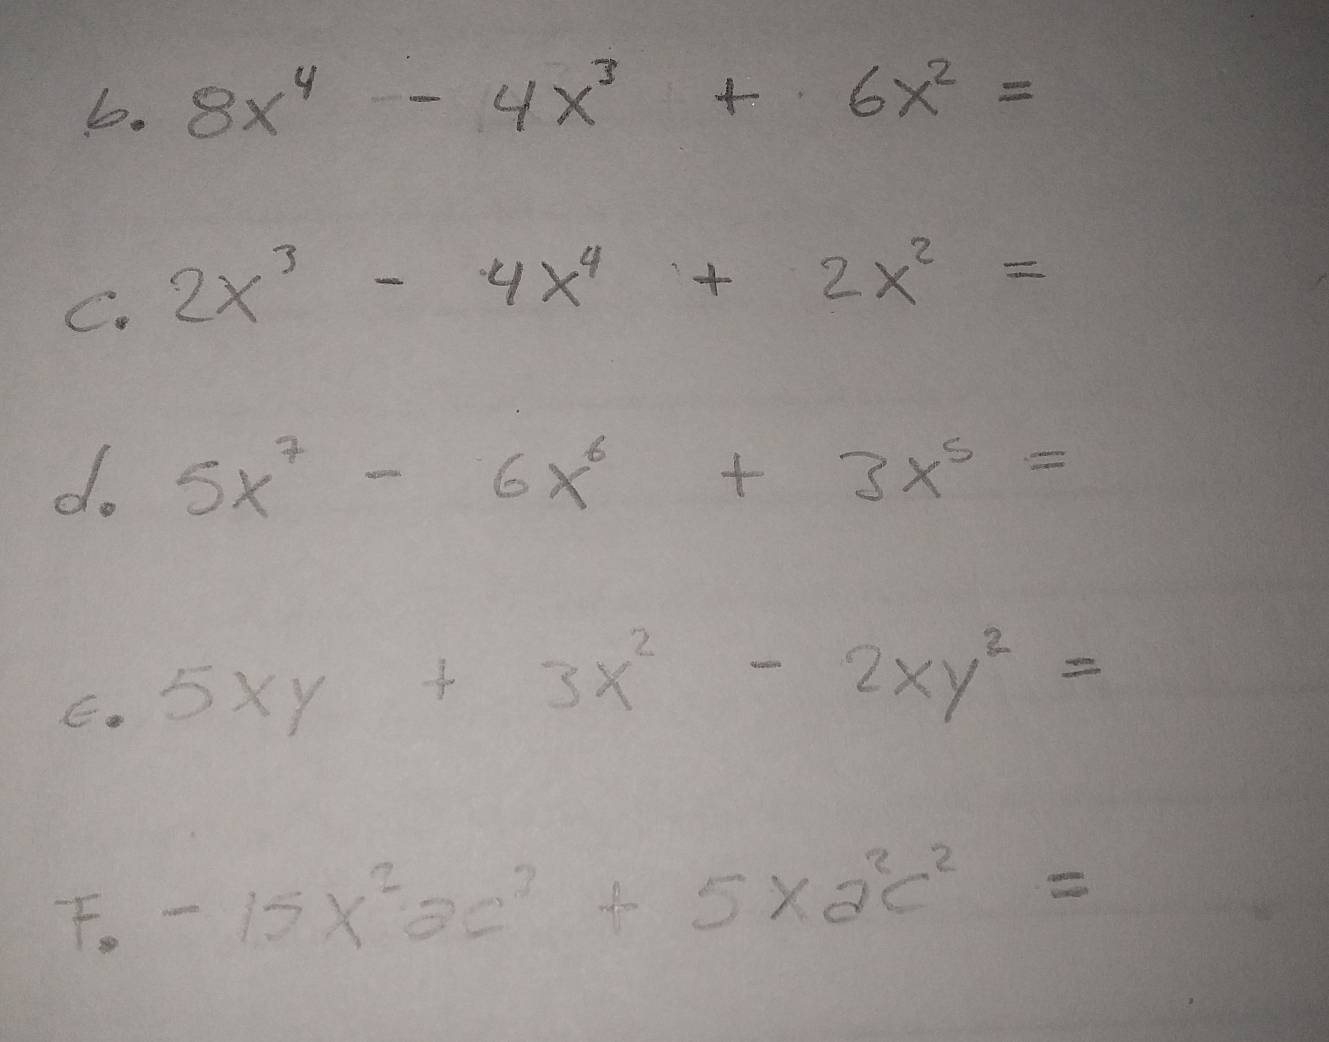 b. 8x⁴ - 4x³ + 6x² =
c. 2x³ - 4x⁴ + 2x² =
d. 5x⁷ - 6x⁶ + 3x⁵ =
e. 5xy + 3x² - 2xy² =
F. - 15x²ac² + 5xa²c² =